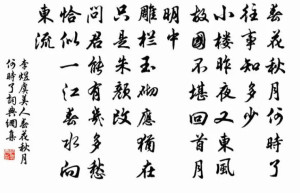 春花秋月何時了
往事知多少
小樓昨夜又東風
故國不堪回首月
明中
雕栏玉砌應猶在
只是朱顔改
問君能有幾多愁
恰似一江春水向
東流
李煜虞美人春花秋月
何時了詞典網集